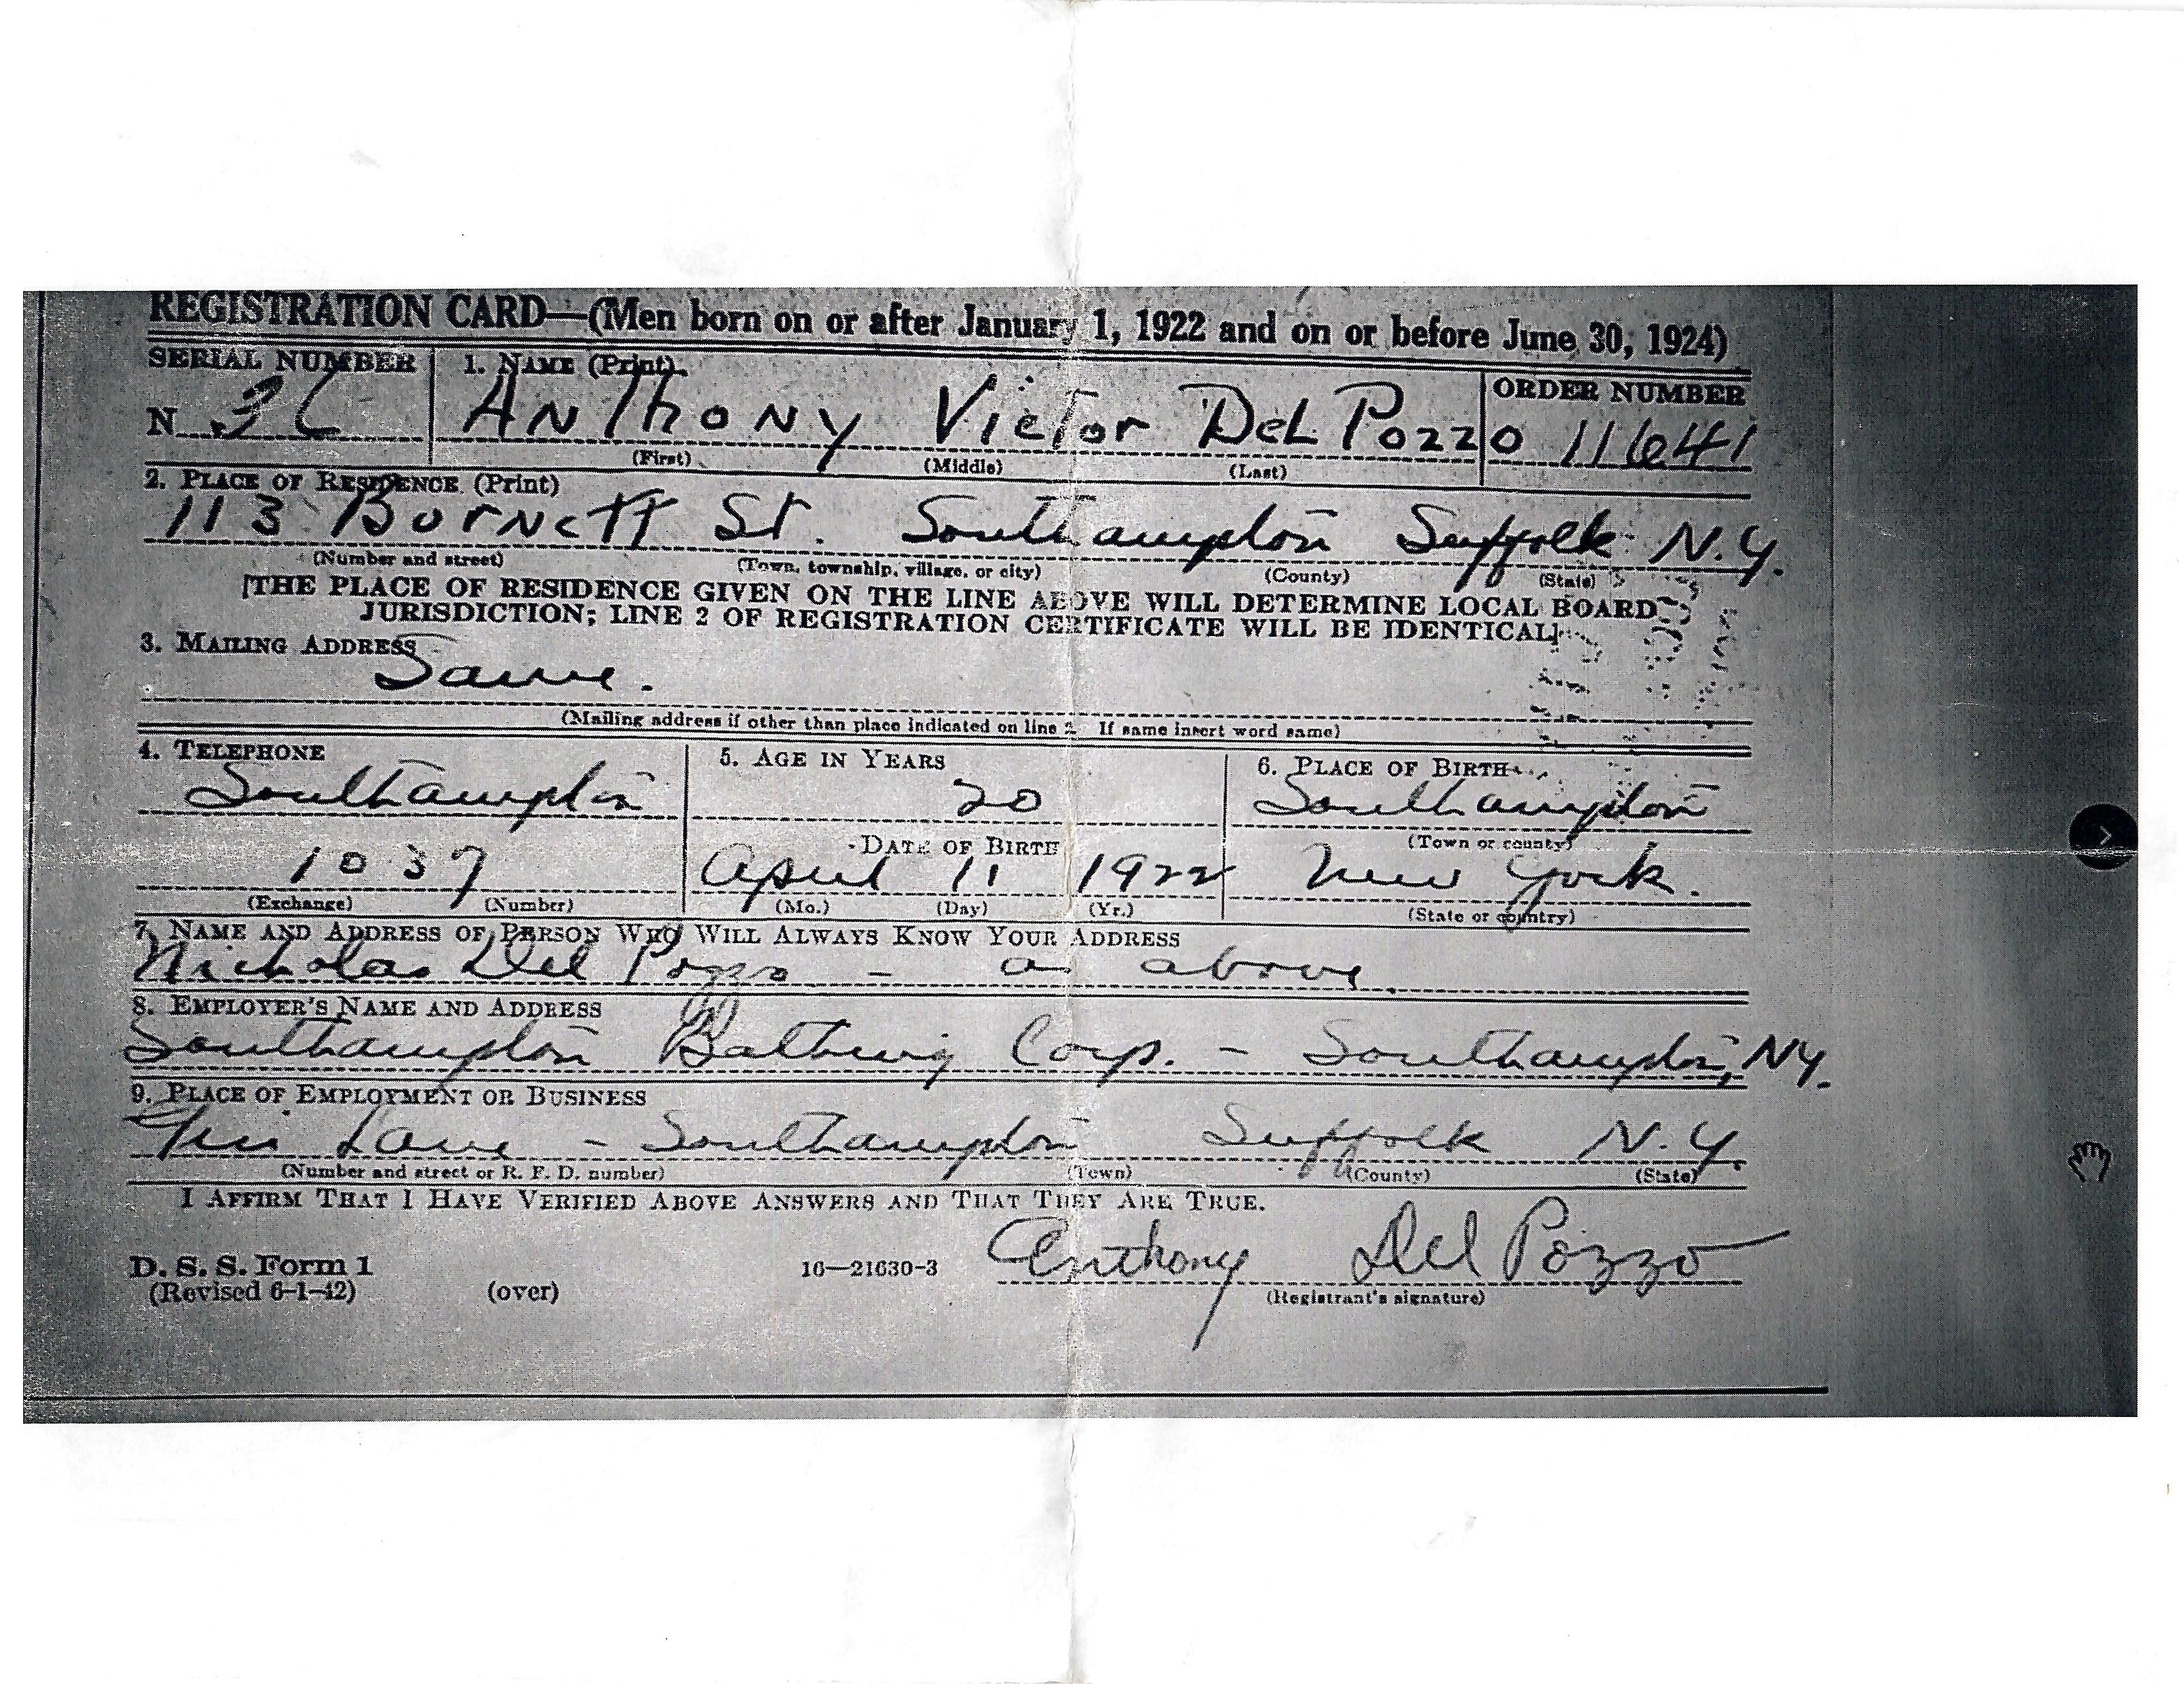 REGISTRATION CARD—(Men born on or after January 1, 1922 and on or before June 30, 1924)
SERIAL NUMBER 1. NAME (Print) ORDER NUMBER
N 36 ANThoNy VicTor DeL Pozzo 11641
(First) (Middle) (Last)
2. PLACE OF RESIDENCE (Print)
113 BurNeTT St. Southampton Suffolk N.Y.
(Number and street) (Town, township, village, or city) (County) (State)
[THE PLACE OF RESIDENCE GIVEN ON THE LINE ABOVE WILL DETERMINE LOCAL BOARD
JURISDICTION; LINE 2 OF REGISTRATION CERTIFICATE WILL BE IDENTICAL]
3. MAILING ADDRESS
Same.
(Mailing address if other than place indicated on line 2 If same insert word same)
4. TELEPHONE 5. AGE IN YEARS 6. PLACE OF BIRTH
Southampton 20 Southampton
DATE OF BIRTH (Town or county)
1037 April 11 1922 New York.
(Exchange) (Number) (Mo.) (Day) (Yr.) (State or country)
7. NAME AND ADDRESS OF PERSON WHO WILL ALWAYS KNOW YOUR ADDRESS
Nicholas Del Pozzo - as above.
8. EMPLOYER'S NAME AND ADDRESS
Southampton Bathing Corp. - Southampton, NY.
9. PLACE OF EMPLOYMENT OR BUSINESS
Gin Lane - Southampton Suffolk N.Y.
(Number and street or R. F. D. number) (Town) (County) (State)
I AFFIRM THAT I HAVE VERIFIED ABOVE ANSWERS AND THAT THEY ARE TRUE.
D. S. S. Form 1 16—21630-3 Anthony Del Pozzo
(Revised 6-1-42) (over) (Registrant's signature)